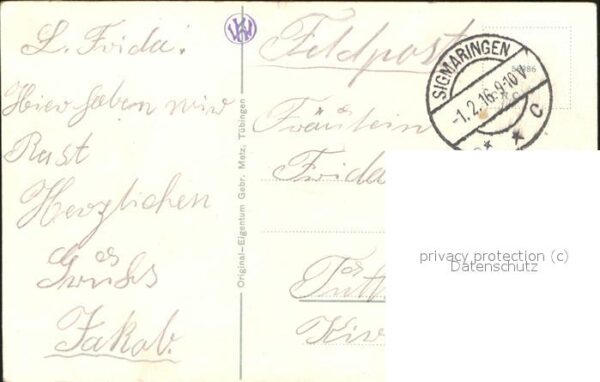 L. Frida!
Hier haben wir
Rast
Herzlichen
Gruß
Jakob.
Original-Eigentum Gebr. Metz, Tübingen
Feldpost
SIGMARINGEN
-1.2.16.9-10V
* * C
Fräulein
Frida
Tutt
privacy protection (c)
Datenschutz